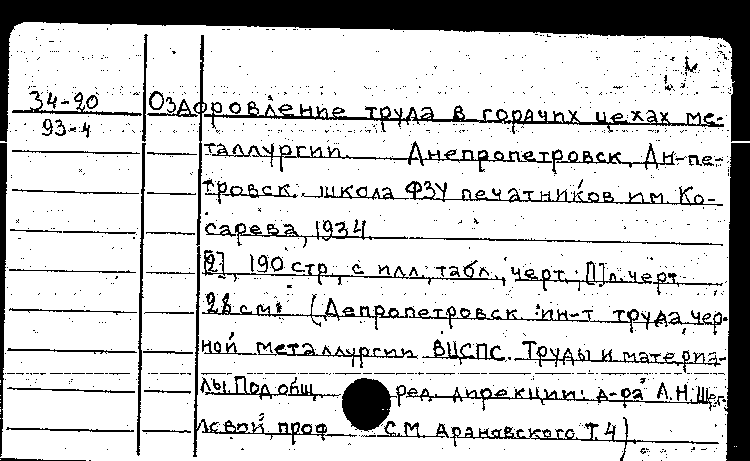 34-20
93-4
Оздоровление труда в горячих цехах ме-
таллургии. Днепропетровск, Дн-пе-
тровск. школа ФЗУ печатников им. Ко-
сарева, 1934.
[2], 190 стр., с илл., табл., черт., [1] л. черт.
28 см. (Депропетровск. ин-т труда чер.
ной металлургии ВЦСПС. Труды и материа-
лы. Под общ. ред. дирекции: д-ра Л.Н. Щег-
левой, проф. С.М. Арановского Т. 4).